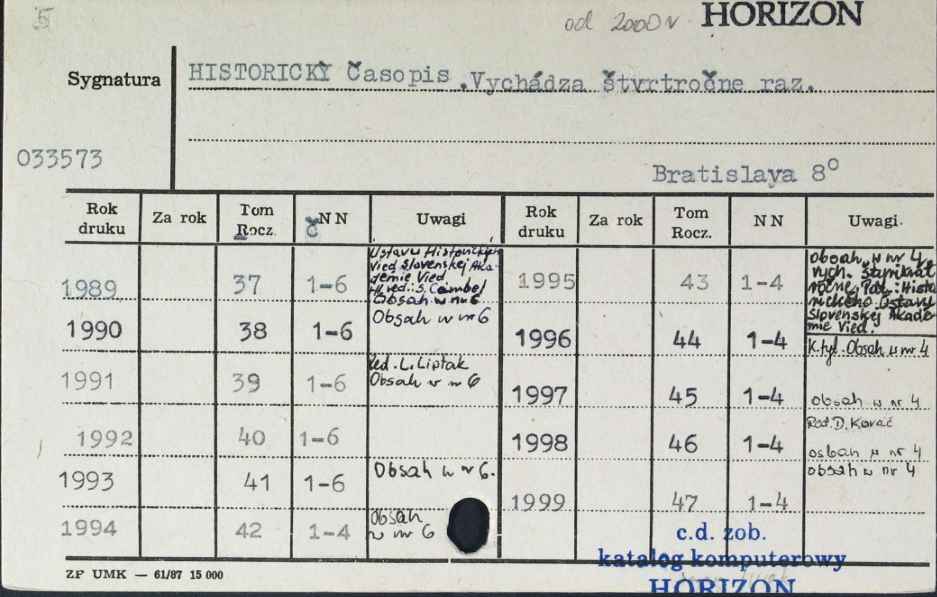 5 od 2000 r HORIZON
Sygnatura HISTORICKÝ Časopis. Vychádza štvrtročne raz.
033573
Bratislava 8°
Rok druku Za rok Tom Rocz. č NN Uwagi Rok druku Za rok Tom Rocz. NN Uwagi.
1989 37 1-6 Ustavu Historických Vied Slovenskej Akademie Vied Obsah w nr 6
1990 38 1-6 Obsah w nr 6
1991 39 1-6 Red. L. Liptak Obsah w nr 6
1992 40 1-6
1993 41 1-6 Obsah w nr 6.
1994 42 1-4 Obsah w nr 6
1995 43 1-4 Obsah w nr 4, vych. ročne, Historického Ústavu Slovenskej Akademie Vied.
1996 44 1-4 K.tyt. Obsah w nr 4
1997 45 1-4 obsah w nr 4
1998 46 1-4 Red. D. Kováč osbah w nr 4
1999 47 1-4 obsah w nr 4
c.d. zob.
katalog komputerowy
HORIZON
ZP UMK — 61/87 15 000